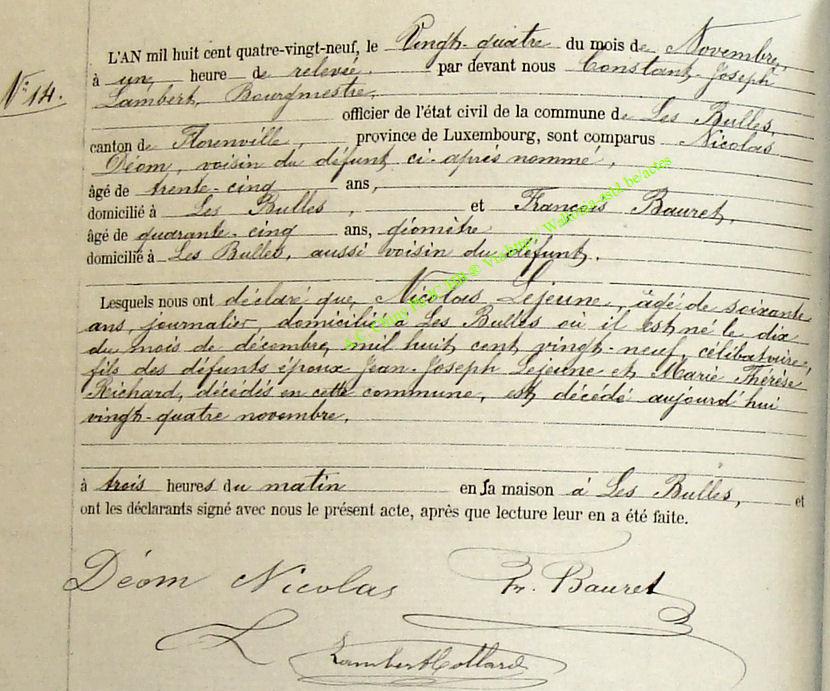 N° 14.
L'AN mil huit cent quatre-vingt-neuf, le Vingt-quatre du mois de Novembre,
à une heure de relevée par devant nous Constant-Joseph
Lambert, Bourgmestre,
officier de l'état civil de la commune de Les Bulles,
canton de Florenville, province de Luxembourg, sont comparus Nicolas
Déom, voisin du défunt ci-après nommé,
âgé de trente-cinq ans,
domicilié à Les Bulles, et François Bauret,
âgé de quarante-cinq ans, géomètre
domicilié à Les Bulles, aussi voisin du défunt.
Lesquels nous ont déclaré que, Nicolas Lejeune, âgé de soixante
ans, journalier, domicilié à Les Bulles où il est né le dix
du mois de décembre, mil huit cent vingt-neuf, célibataire,
fils des défunts époux Jean-Joseph Lejeune et Marie Thérèse
Reichard, décédés en cette commune, est décédé aujourd'hui
vingt-quatre novembre,
à trois heures du matin en sa maison à Les Bulles, et
ont les déclarants signé avec nous le présent acte, après que lecture leur en a été faite.
Déom Nicolas Fr. Bauret
L Lambert Hollard